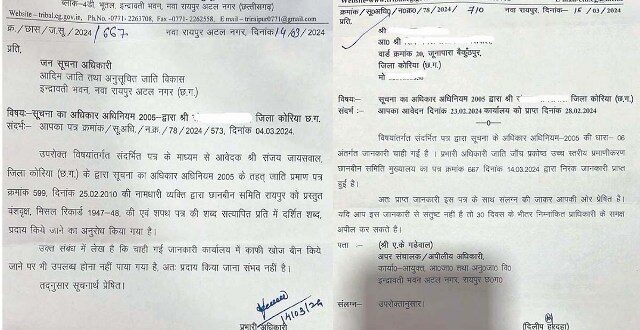 ब्लाक-4डी, भूतल, इन्द्रावती भवन, नवा रायपुर अटल नगर, (छत्तीसगढ़)
Website – tribal.cg.gov.in, Ph.No.-0771- 2263708, Fax-0771-2262558, E-mail – tricsipur07@gmail.com
क्र. / छास / ज.सू. / 667 नवा रायपुर अटल नगर, दिनांक 14/03/2024
प्रति,
जन सूचना अधिकारी
आदिम जाति तथा अनुसूचित जाति विकास
इन्द्रावती भवन, नवा रायपुर अटल नगर (छ.ग.)
विषयः–सूचना का अधिकार अधिनियम 2005–द्वारा श्री जिला कोरिया छ.ग.
संदर्भः– आपका पत्र क्रमांक / सू.अधि. / न.क्र. / 78 / 2024 / 573, दिनांक 04.03.2024.
उपरोक्त विषयांतर्गत संदर्भित पत्र के माध्यम से आवेदक श्री संजय जायसवाल,
जिला कोरिया (छ.ग.) के द्वारा सूचना का अधिकार अधिनियम 2005 के तहत् जाति प्रमाण पत्र
क्रमांक 599, दिनांक 25.02.2010 की नामधारी व्यक्ति द्वारा छानबीन समिति रायपुर को प्रस्तुत
वंशवृक्ष, मिसल रिकार्ड 1947-48, की एवं शपथ पत्र की शब्द सत्यापित प्रति में दर्शित शब्द,
प्रदाय किये जाने का अनुरोध किया गया है।
उक्त संबंध में लेख है कि चाही गई जानकारी कार्यालय में काफी खोज बीन किये
जाने पर भी उपलब्ध होना नहीं पाया गया है, अतः प्रदाय किया जाना संभव नहीं है।
तद्नुसार सूचनार्थ प्रेषित।
14/03/24
प्रभारी अधिकारी
Website – tribal.cg.gov.in
क्रमांक / सू.अधि. / न.क्र. / 78 / 2024 / 710 नवा रायपुर, दिनांक– 15 / 03 / 2024
प्रति,
श्री
आ0 श्री
वार्ड क्रमांक 20, जूनापारा बैकुंठपुर,
जिला कोरिया (छ.ग.)
मो
विषयः– सूचना का अधिकार अधिनियम 2005 द्वारा श्री जिला कोरिया (छ.ग.)
संदर्भ :– आपका आवेदन दिनांक 23.02.2024 कार्यालय को प्राप्त दिनांक 28.02.2024
—0—
विषयांतर्गत संदर्भित पत्र द्वारा सूचना के अधिकार अधिनियम–2005 की धारा– 06
अंतर्गत जानकारी चाही गई है। प्रभारी अधिकारी जाति जाँच प्रकोष्ठ उच्च स्तरीय प्रमाणीकरण
छानबीन समिति मुख्यालय का पत्र क्रमांक 667 दिनांक 14.03.2024 द्वारा निरंक जानकारी प्राप्त
हुई है।
अतः प्राप्त जानकारी इस पत्र के साथ संलग्न की जाकर आपकी ओर प्रेषित है।
यदि आप इस जानकारी से संतुष्ट नहीं है तो 30 दिवस के भीतर निम्नांकित प्राधिकारी के समक्ष
अपील कर सकते है।
पता :– (श्री ए.के गढेवाल)
अपर संचालक / अपीलीय अधिकारी,
कार्या0–आयुक्त, आ0जा0 तथा अनु0जा0 वि0
इन्द्रावती भवन अटल नगर, रायपुर छ0ग0
संलग्न :– उपरोक्तानुसार।